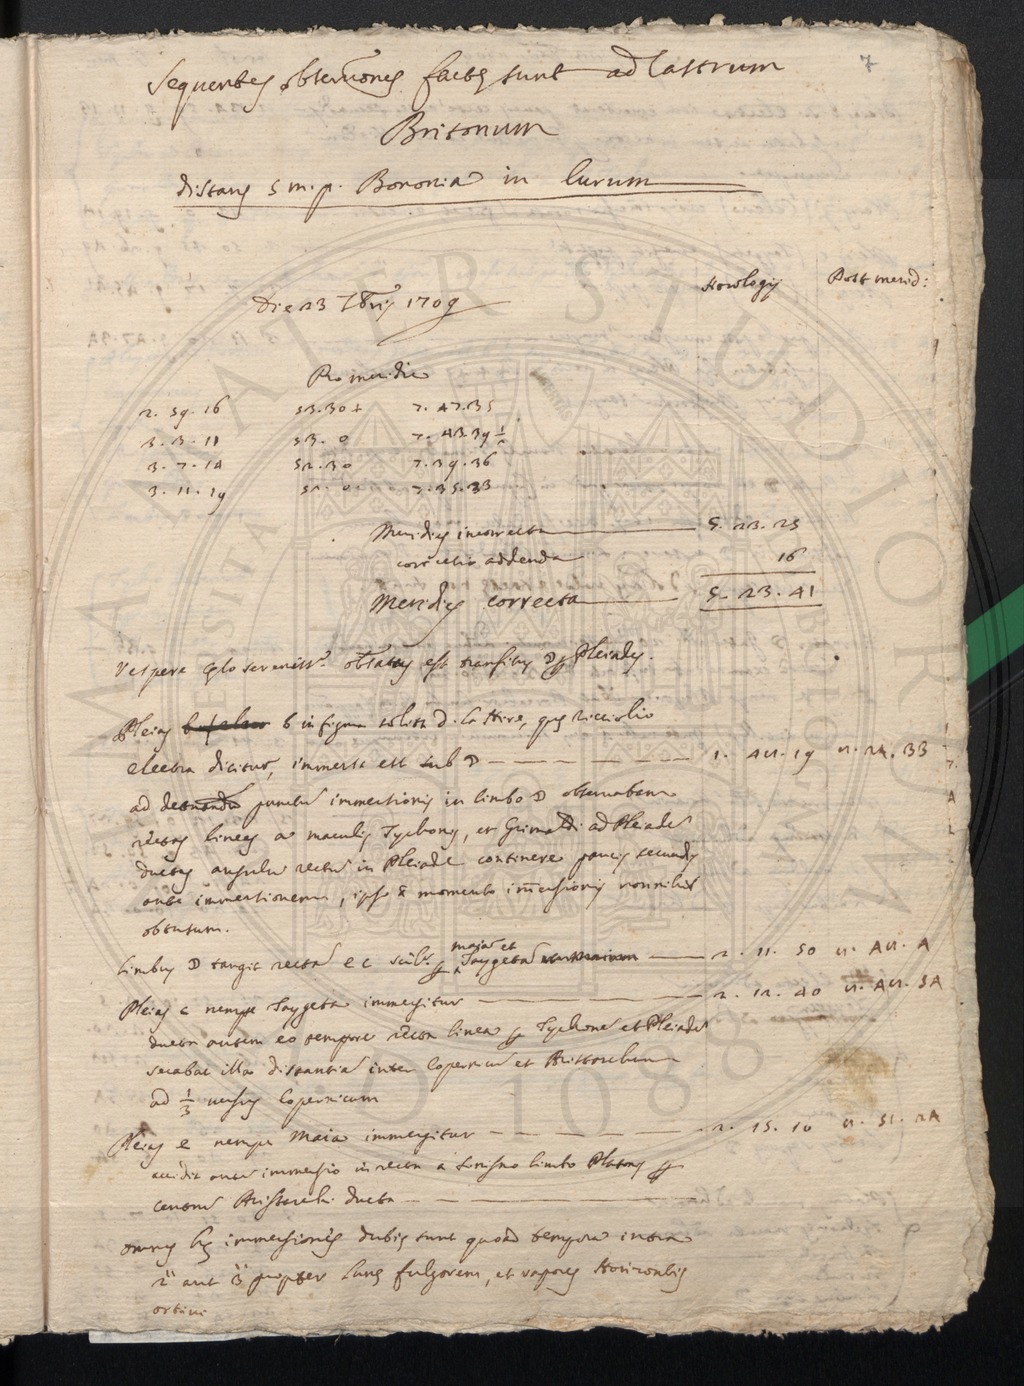 7
Sequentes observones factę sunt ad Castrum
Britonum
distans 5 m.p. Bononia in Eurum
Horologij Post merid:
Die 23 7bris 1709
Pro meridie
2. 59. 16 53.30+ 7. 47.35
3. 3. 11 53. 0 7. 43.39 ½
3. 7. 14 52.30 7. 39. 36
3. 11. 19 52. 0 7. 35.33
Meridies incorrecta 5. 23. 25
correctio addenda 16
Meridies correcta 5. 23. 41
Vespere cęlo serenissº. obseatus est transitus ☽ p Pleiades.
Pleias b in figura solita D. la Hire, quę Ricciolio
electra dicitur, immersa est sub ☽ 1. 42. 19
ad punctū immersionis in limbo ☽ observabam
rectas lineas a maculis Tychonis, et Grimaldi ad Pleiadē
ductas angulū rectū in Pleiade continere paucis secundis
ante immersionem, ipso ū momento immersionis nonnihil
obtusum.
limbus ☽ tangit rectā e c p maiā et Taygetā 2. 11. 50
Pleias c nempe Taygeta immergitur 2. 12. 40
ducta autem eo tempore recta linea p Tychonē et Pleiadē
secabat illa distantiā inter Copernicū et Aristarchum
ad 1/3 versus Copernicum
Pleias e nempe Maia immergitur 2. 15. 10
accidit autē immersio in recta a limbo Platonis p
centrū Aristarchi ducta
omnes hę immersiones dubię sunt quoad tempora intra
2" aut 3" propter lunę fulgorem, et vapores Horizontis
ortiui